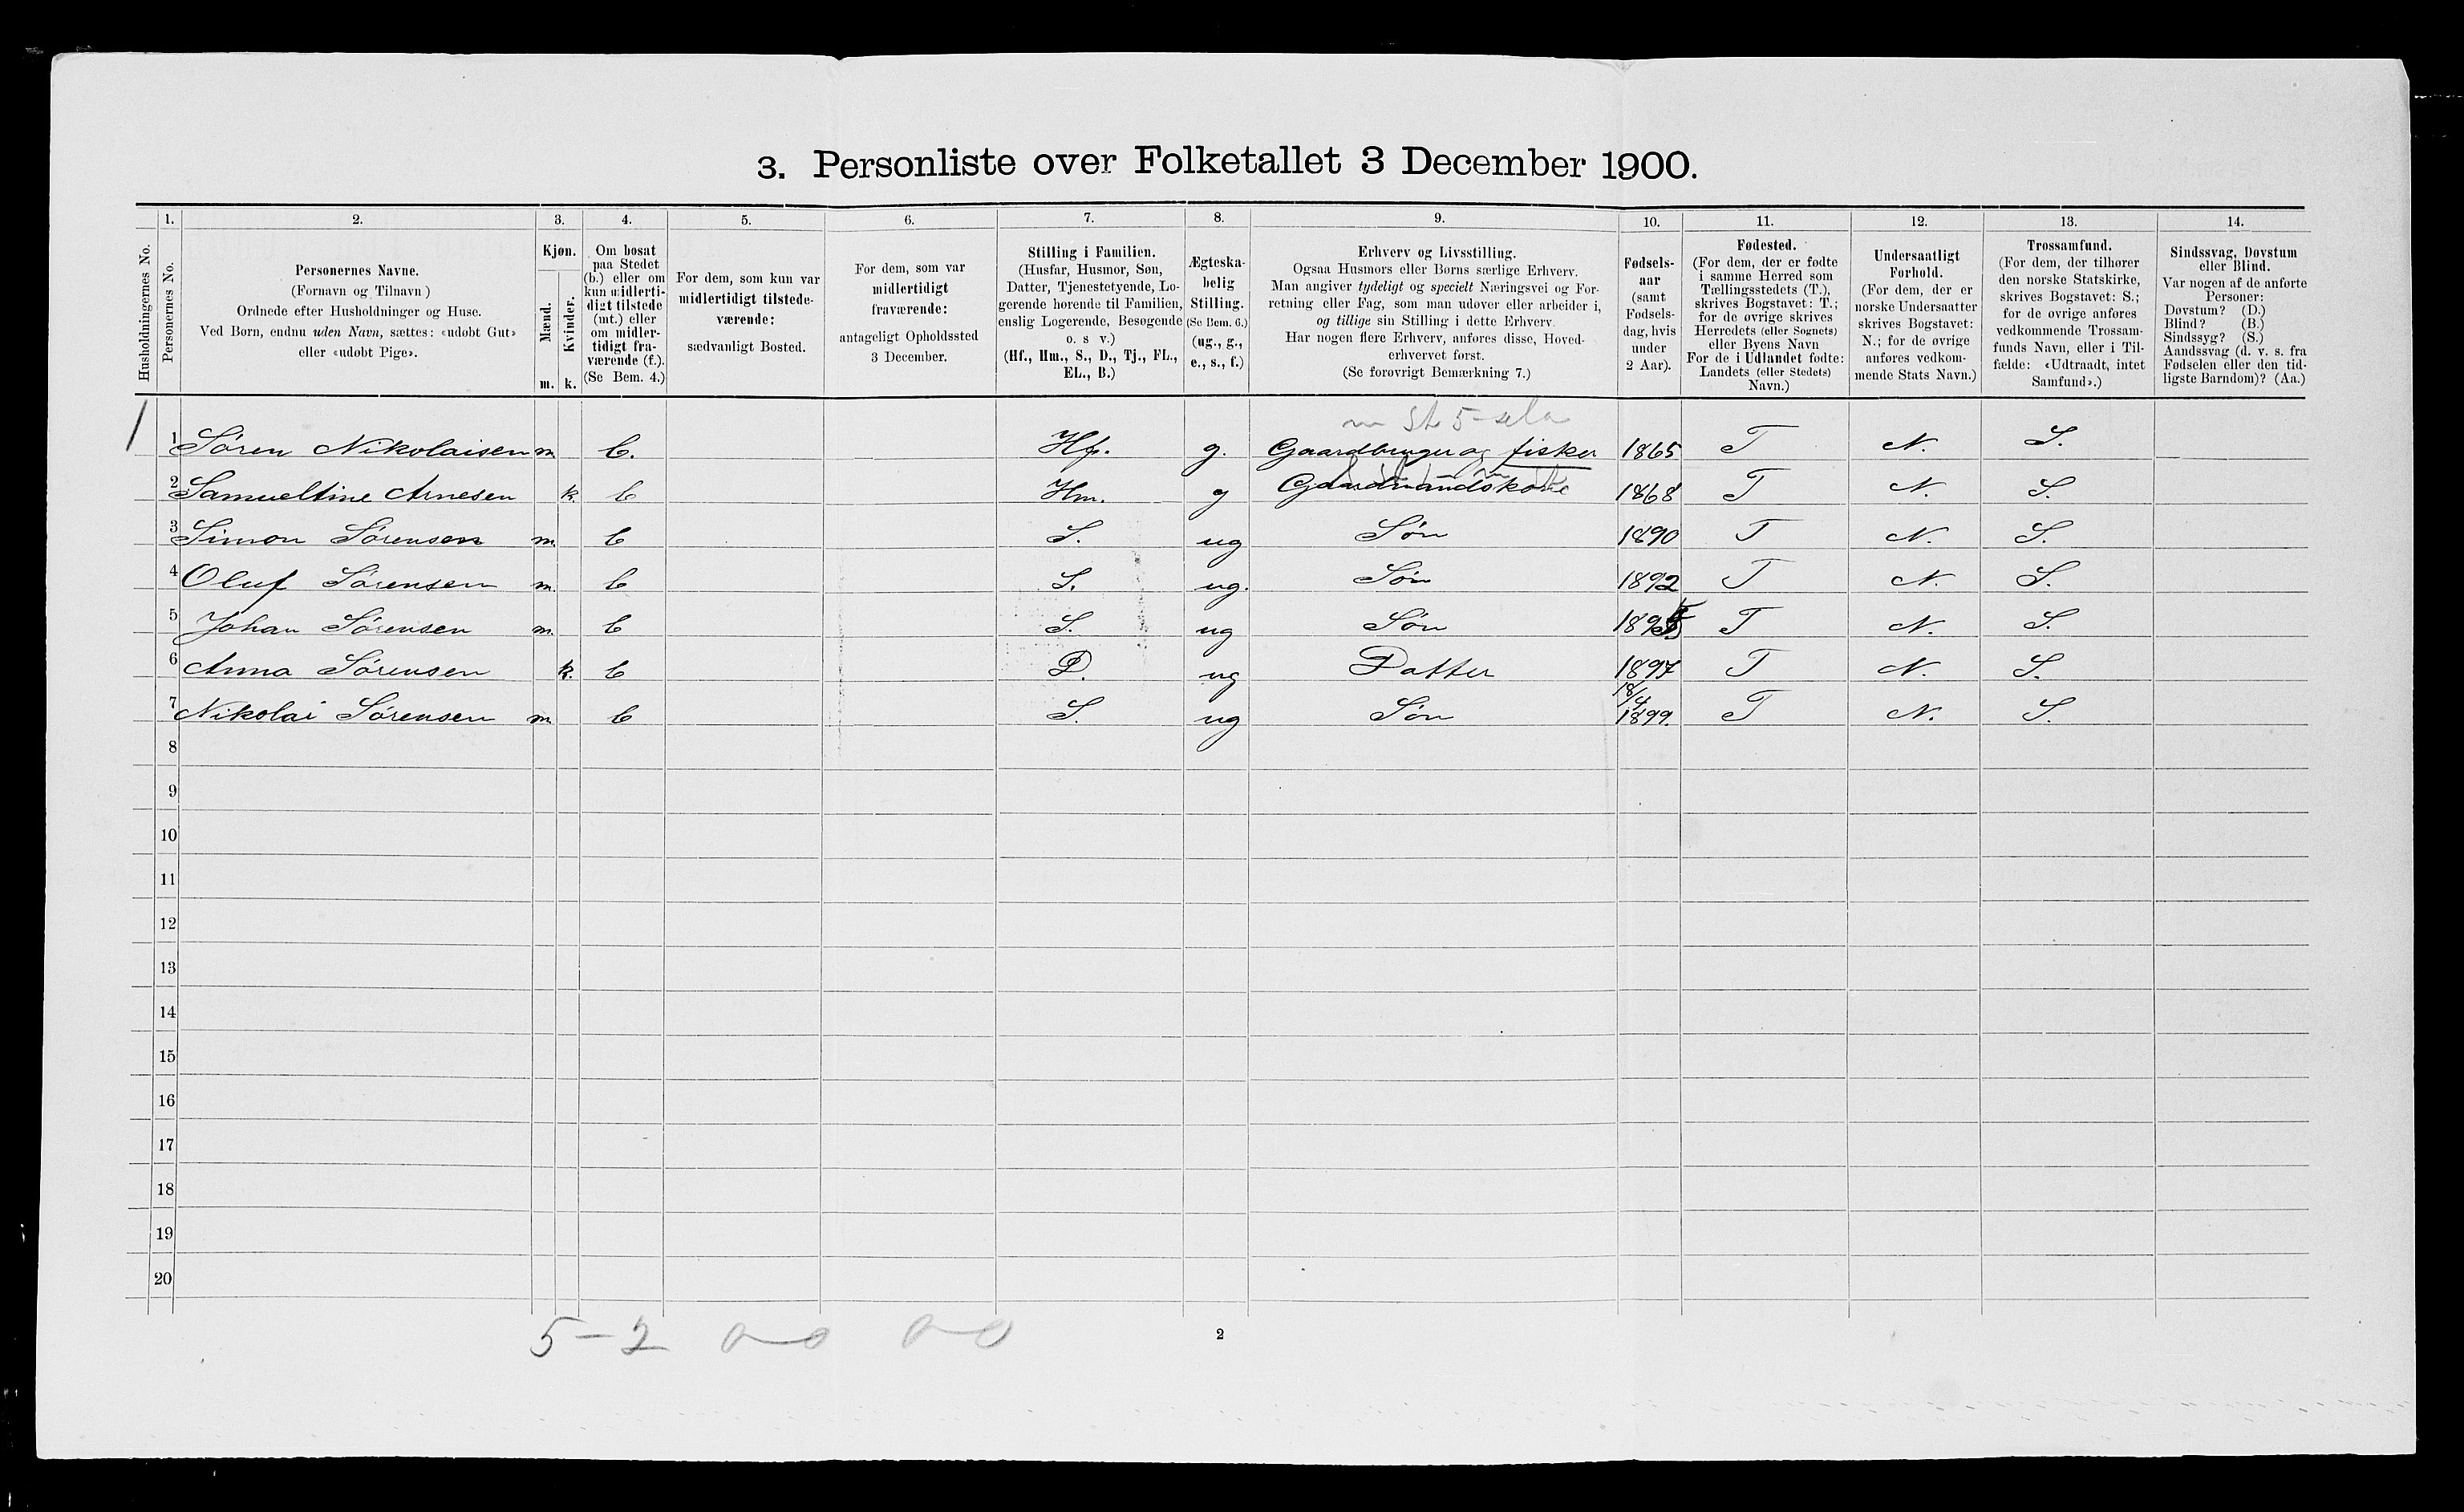 3. Personliste over Folketallet 3 December 1900.
1. 2. 3. 4. 5. 6. 7. 8. 9. 10. 11. 12. 13. 14.
Husholdningernes No.
Personernes No.
Personernes Navne.
(Fornavn og Tilnavn)
Ordnede efter Husholdninger og Huse.
Ved Børn, endnu uden Navn, sættes: «udøbt Gut»
eller «udøbt Pige».
Kjøn.
Mænd.
Kvinder.
m. k.
Om bosat
paa Stedet
(b.) eller om
kun midlerti-
digt tilstede
(mt.) eller
om midler-
tidigt fra-
værende (f.).
(Se Bem. 4.)
For dem, som kun var
midlertidigt tilstede-
værende:
sædvanligt Bosted.
For dem, som var
midlertidigt
fraværende:
antageligt Opholdssted
3 December.
Stilling i Familien.
(Husfar, Husmor, Søn,
Datter, Tjenestetyende, Lo-
gerende hørende til Familien,
enslig Logerende, Besøgende
o. s v.)
(Hf., Hm., S., D., Tj., FL.,
EL., B.)
Ægteska-
belig
Stilling.
(Se Bem. 6.)
(ug., g.,
e., s., f.)
Erhverv og Livsstilling.
Ogsaa Husmors eller Børns særlige Erhverv.
Man angiver tydeligt og specielt Næringsvei og For-
retning eller Fag, som man udøver eller arbeider i,
og tillige sin Stilling i dette Erhverv.
Har nogen flere Erhverv, anføres disse, Hoved-
erhvervet først.
(Se forøvrigt Bemærkning 7.)
Fødsels-
aar
(samt
Fødsels-
dag, hvis
under
2 Aar).
Fødested.
(For dem, der er fødte
i samme Herred som
Tællingsstedets (T.),
skrives Bogstavet: T.;
for de øvrige skrives
Herredets (eller Sognets)
eller Byens Navn
For de i Udlandet fødte:
Landets (eller Stedets)
Navn.)
Undersaatligt
Forhold.
(For dem, der er
norske Undersaatter
skrives Bogstavet:
N.; for de øvrige
anføres vedkom-
mende Stats Navn.)
Trossamfund.
(For dem, der tilhører
den norske Statskirke,
skrives Bogstavet: S.;
for de øvrige anføres
vedkommende Trossam-
funds Navn, eller i Til-
fælde: «Udtraadt, intet
Samfund».)
Sindssvag, Døvstum
eller Blind.
Var nogen af de anførte
Personer:
Døvstum? (D.)
Blind? (B.)
Sindssyg? (S.)
Aandssvag (d. v. s. fra
Fødselen eller den tid-
ligste Barndom)? (Aa.)
1 1 Søren Nikolaisen m. b. Hf. g. Gaardbruger og fisker 1865 T N. S.
2 Samueltine Arnesen k b Hm. g Gaardmandskone 1868 T N. S.
3 Simon Sørensen m. b S. ug Søn 1890 T N. S.
4 Oluf Sørensen m. b S. ug. Søn 1892 T N. S.
5 Johan Sørensen m. b S. ug Søn 1895 T N. S.
6 Anna Sørensen k. b D. ug Datter 1897 T N. S.
7 Nikolai Sørensen m. b S. ug Søn 18/4 1899. T N. S.
8
9
10
11
12
13
14
15
16
17
18
19
20
5-2 0-0 0-0
2